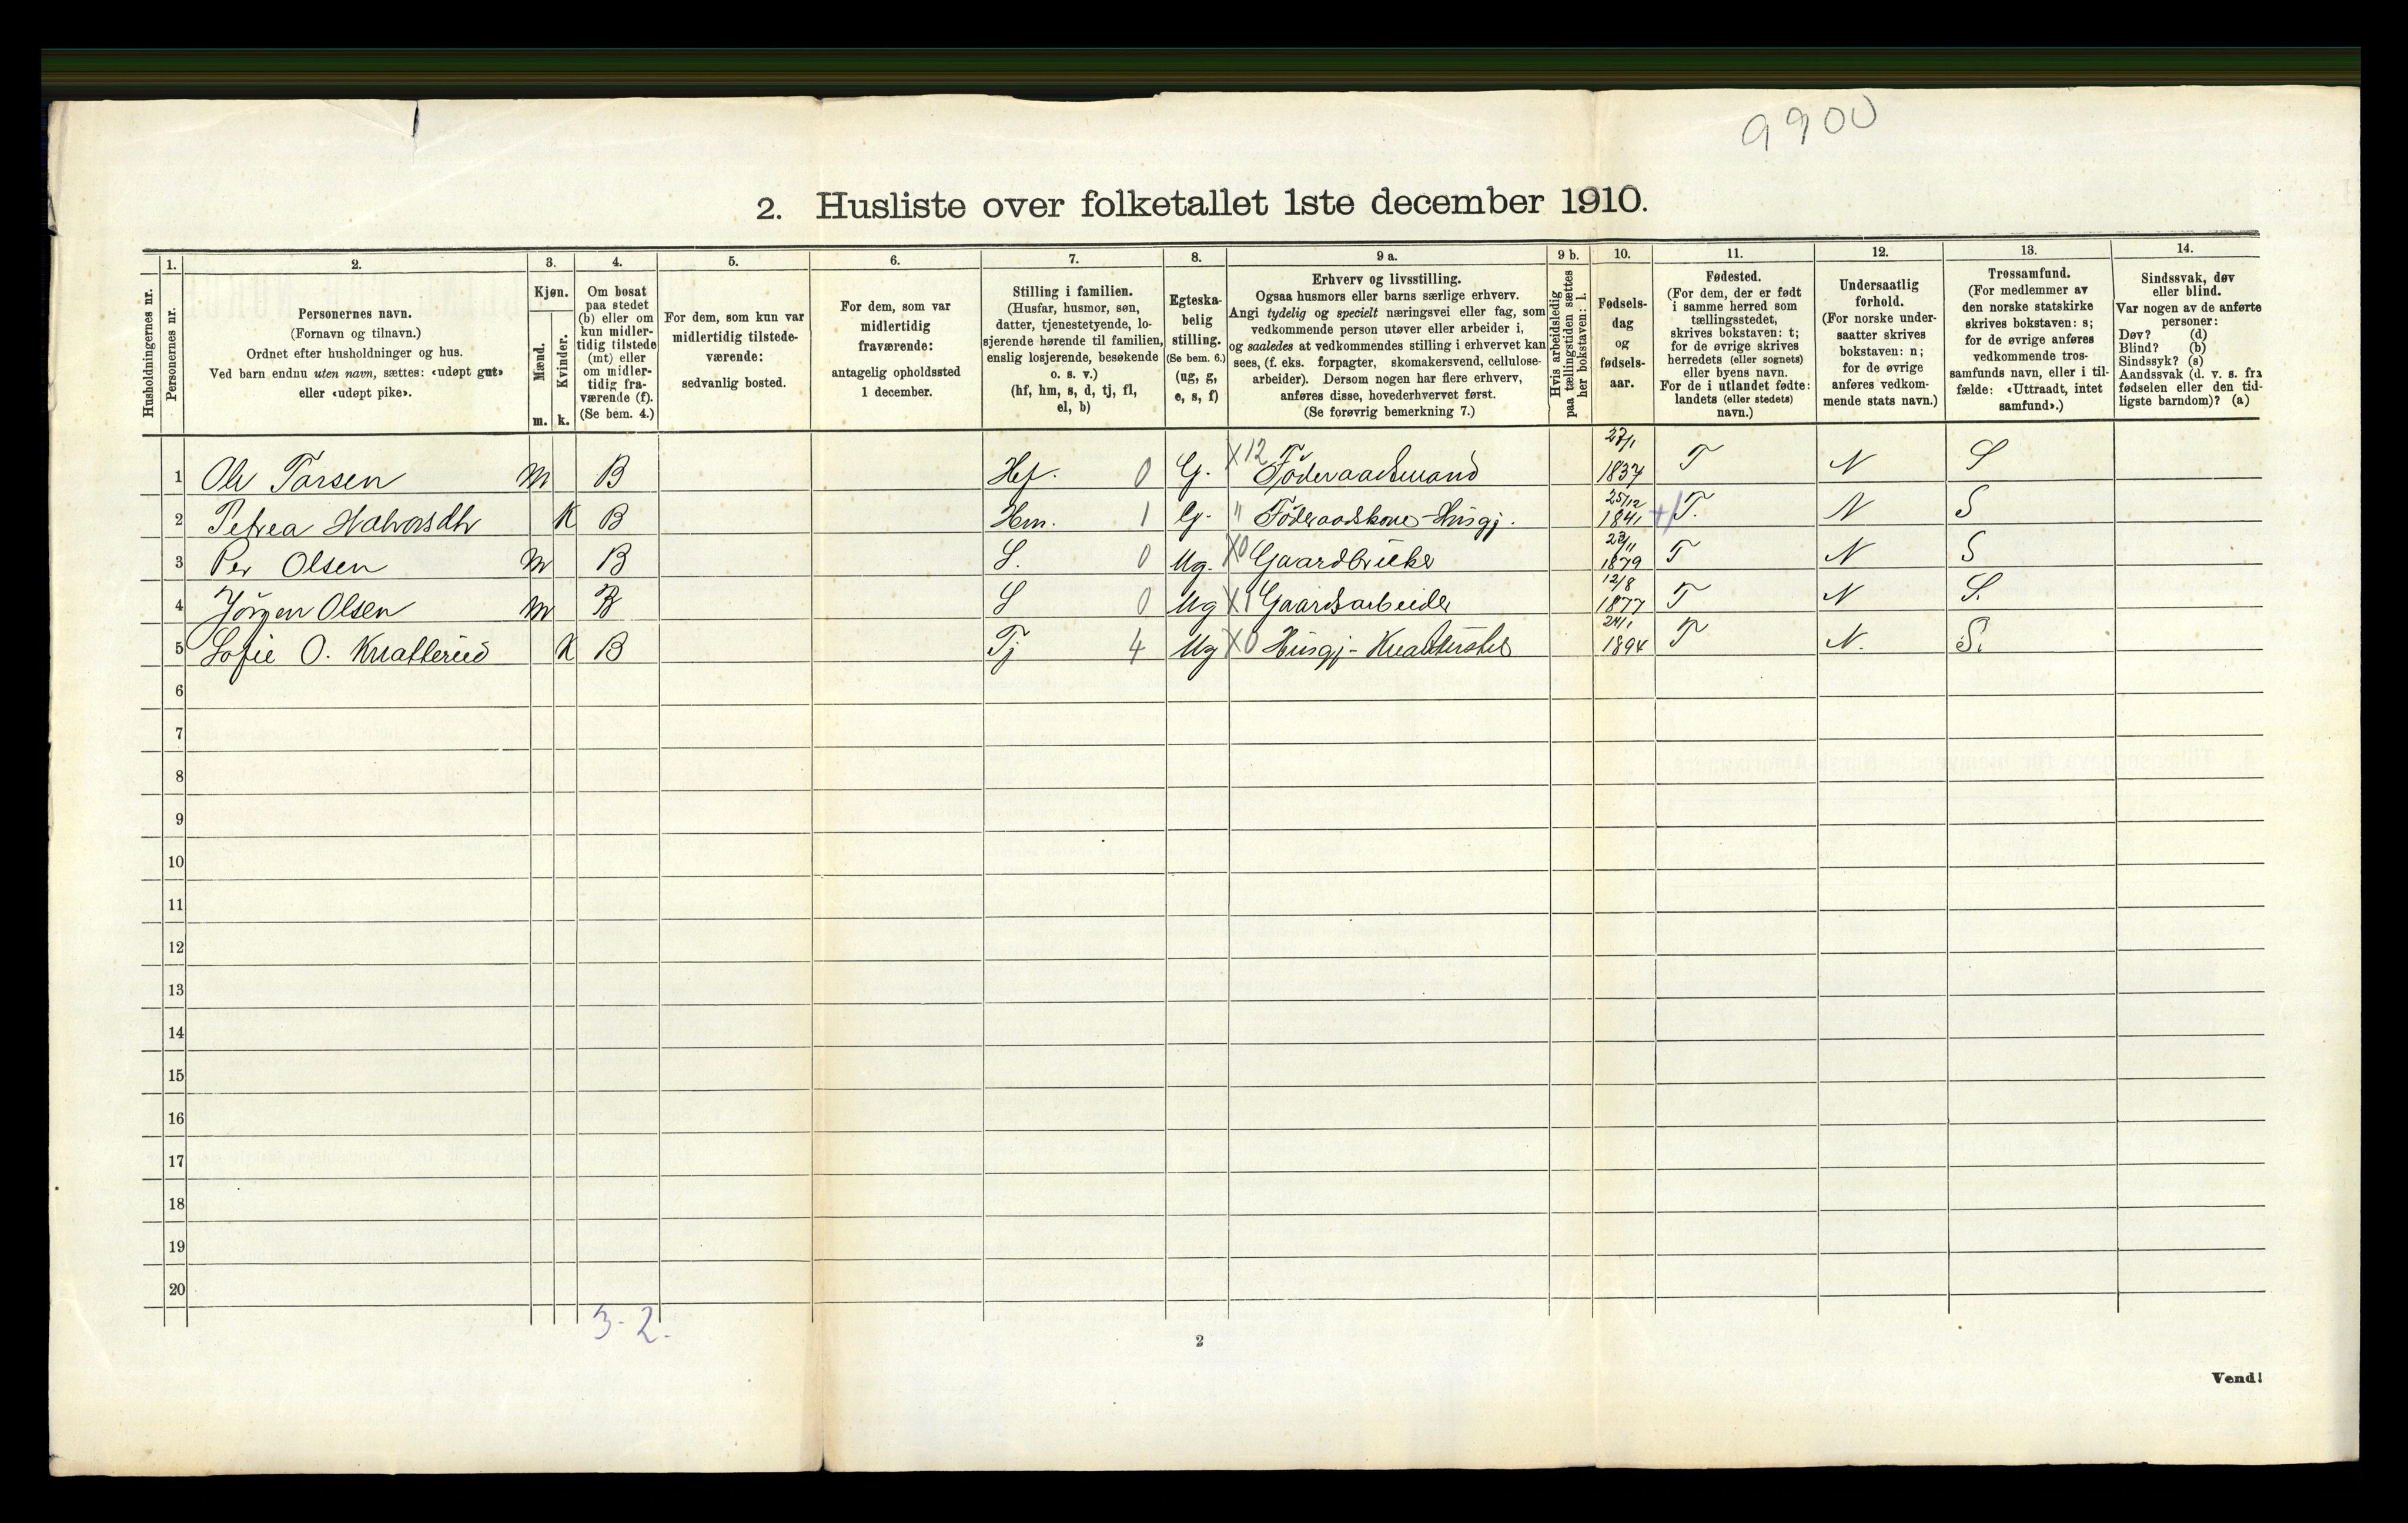 9900
2. Husliste over folketallet 1ste december 1910.
Husholdningernes nr.
1.
Personernes nr.
2.
Personernes navn.
(Fornavn og tilnavn.)
Ordnet efter husholdninger og hus.
Ved barn endnu uten navn, sættes: «udøpt gut»
eller «udøpt pike».
3.
Kjøn.
Mænd.
Kvinder.
m.
k.
4.
Om bosat
paa stedet
(b) eller om
kun midler-
tidig tilstede
(mt) eller
om midler-
tidig fra-
værende (f).
(Se bem. 4.)
5.
For dem, som kun var
midlertidig tilstede-
værende:
sedvanlig bosted.
6.
For dem, som var
midlertidig
fraværende:
antagelig opholdssted
1 december.
7.
Stilling i familien.
(Husfar, husmor, søn,
datter, tjenestetyende, lo-
sjerende hørende til familien,
enslig losjerende, besøkende
o. s. v.)
(hf, hm, s, d, tj, fl,
el, b)
8.
Egteska-
belig
stilling.
(Se bem. 6.)
(ug, g,
e, s, f)
9 a.
Erhverv og livsstilling.
Ogsaa husmors eller barns særlige erhverv.
Angi tydelig og specielt næringsvei eller fag, som
vedkommende person utøver eller arbeider i,
og saaledes at vedkommendes stilling i erhvervet kan
sees, (f. eks. forpagter, skomakersvend, cellulose-
arbeider). Dersom nogen har flere erhverv,
anføres disse, hovederhvervet først.
(Se forøvrig bemerkning 7.)
9 b.
Hvis arbeidsledig
paa tællingstiden sættes
her bokstaven: l.
10.
Fødsels-
dag
og
fødsels-
aar.
11.
Fødested.
(For dem, der er født
i samme herred som
tællingsstedet,
skrives bokstaven: t;
for de øvrige skrives
herredets (eller sognets)
eller byens navn.
For de i utlandet fødte:
landets (eller stedets)
navn.)
12.
Undersaatlig
forhold.
(For norske under-
saatter skrives
bokstaven: n;
for de øvrige
anføres vedkom-
mende stats navn.)
13.
Trossamfund.
(For medlemmer av
den norske statskirke
skrives bokstaven: s;
for de øvrige anføres
vedkommende tros-
samfunds navn, eller i til-
fælde: «Uttraadt, intet
samfund».)
14.
Sindssvak, døv
eller blind.
Var nogen av de anførte
personer:
Døv? (d)
Blind? (b)
Sindssyk? (s)
Aandssvak (d. v. s. fra
fødselen eller den tid-
ligste barndom)? (a)
1 Ole Torsen M B Hf. 0 G. X12 Föderaadsmand 27/1 1837 T N S
2 Petrea Halvorsdtr K B Hm. 1 G. " Föderaadskone-Husgj. 25/12 1841 +/ T. N S
3 Per Olsen M B S. 0 Ug. X0 Gaardbruker 23/11 1879 T N S
4 Jörgen Olsen M B S 0 Ug X1 Gaardsarbeider 12/8 1877 T N S.
5 Sofie O. Knatterud K B Tj 4 Ug X0 Husgj- 24/1 1894 T N. S.
6
7
8
9
10
11
12
13
14
15
16
17
18
19
20
3-2.
2
Vend!